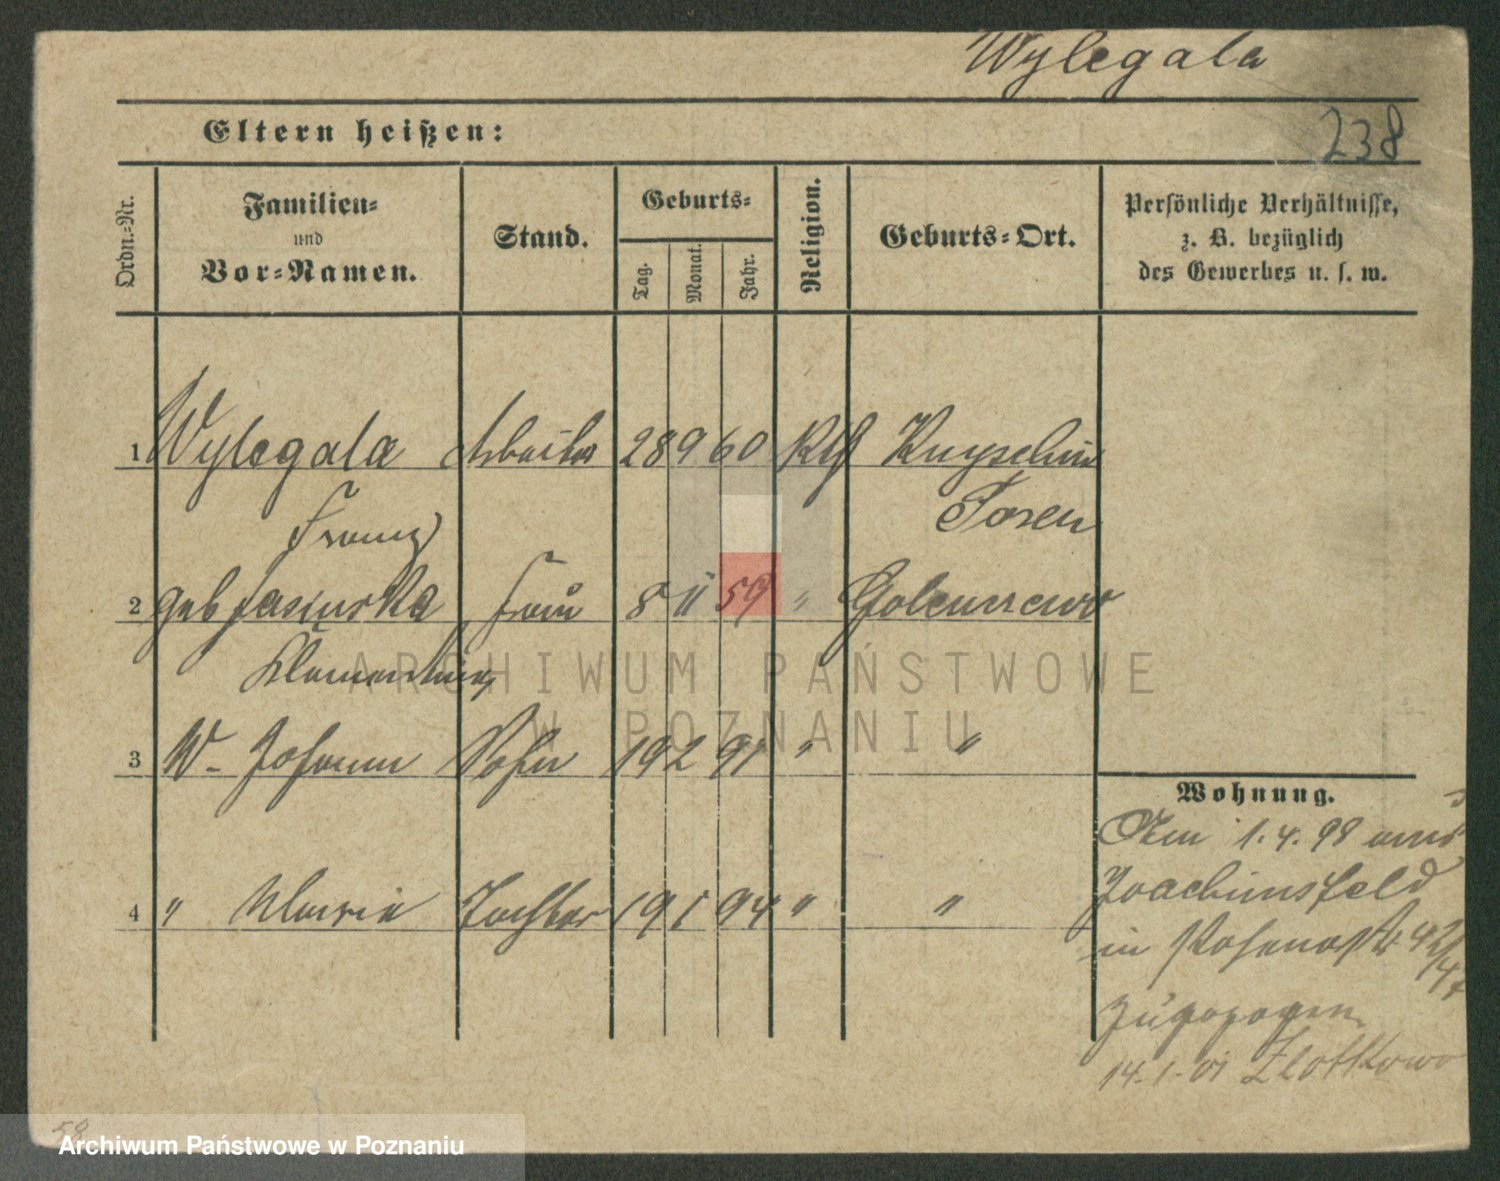 Wylegala
Eltern heißen:
238
Ordn.-Nr.
Familien-
und
Vor-Namen.
Stand.
Geburts-
Tag.
Monat.
Jahr.
Religion.
Geburts-Ort.
Persönliche Verhältnisse,
z. B. bezüglich
des Gewerbes u. s. w.
1 Wylegala Arbeiter 28 9 60 Kth
Franz Posen
2 geb Jasinska Frau 8 11 59 "
Klementina
3 W- Johann Sohn 19 2 91 " "
4 " Maria Tochter 19 1 94 " "
Wohnung.
Am 1.4.98 aus
Joachimsfeld
in Posenerstr 42/47
Zugezogen
14.1.01 Zlotkowo
ARCHIWUM PAŃSTWOWE
W POZNANIU
59
Archiwum Państwowe w Poznaniu